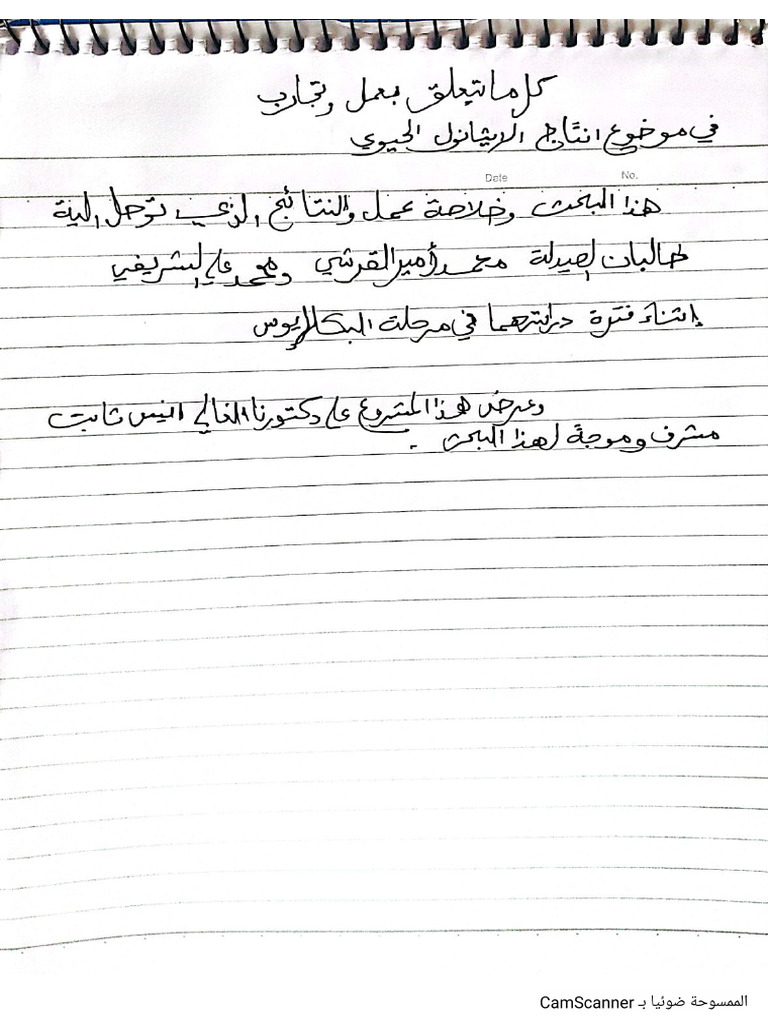 كل ما يتعلق بعمل وتجارب
في موضوع انتاج الايثانول الحيوي
Date No.
هذا البحث وخلاصة عمل والنتائج الذي توصل الية
طالبان الصيدلة محمد أمير القرشي ومحمد علي الشريفي
إثناء فترة دراستهما في مرحلة البكالريوس
وعرض هذا المشروع على دكتورنا الغالي انيس ثابت
مشرف وموجة لهذا البحث .
الممسوحة ضوئيا بـ CamScanner